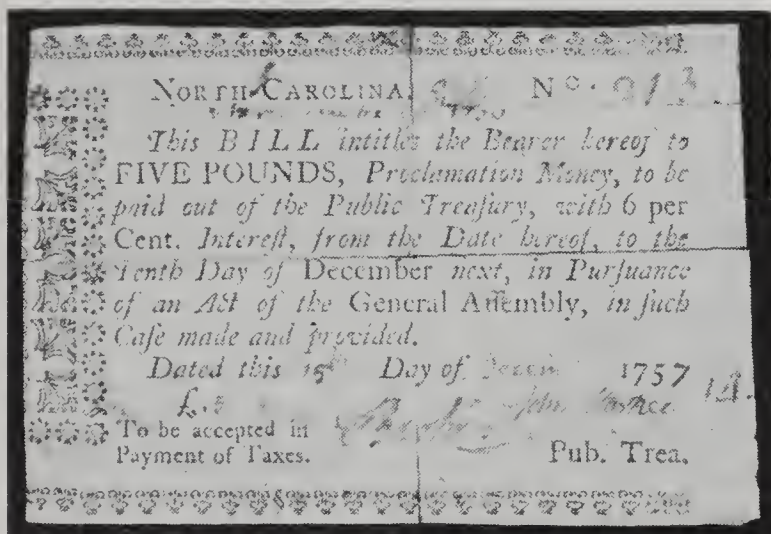 NORTH CAROLINA, No. 213
This BILL intitles the Bearer hereof to
FIVE POUNDS, Proclamation Money, to be
paid out of the Public Treaſury, with 6 per
Cent. Intereſt, from the Date hereof, to the
Tenth Day of December next, in Purſuance
of an Act of the General Aſſembly, in ſuch
Caſe made and provided.
Dated this 15th Day of 1757
£.5
To be accepted in
Payment of Taxes.
Pub. Trea.